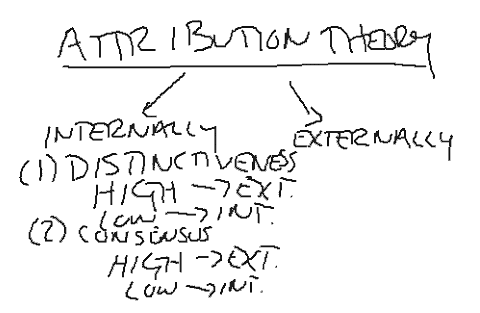 ATTRIBUTION THEORY
INTERNALLY
EXTERNALLY
(1) DISTINCTIVENESS
HIGH → EXT.
LOW → INT.
(2) CONSENSUS
HIGH → EXT.
LOW → INT.